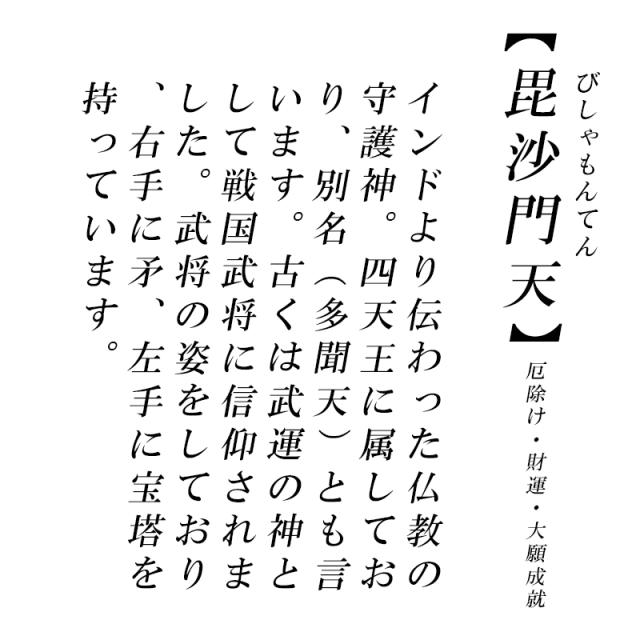 びしゃもんてん
【毘沙門天】
厄除け・財運・大願成就
インドより伝わった仏教の
守護神。四天王に属してお
り、別名（多聞天）とも言
います。古くは武運の神と
して戦国武将に信仰されま
した。武将の姿をしており
、右手に矛、左手に宝塔を
持っています。